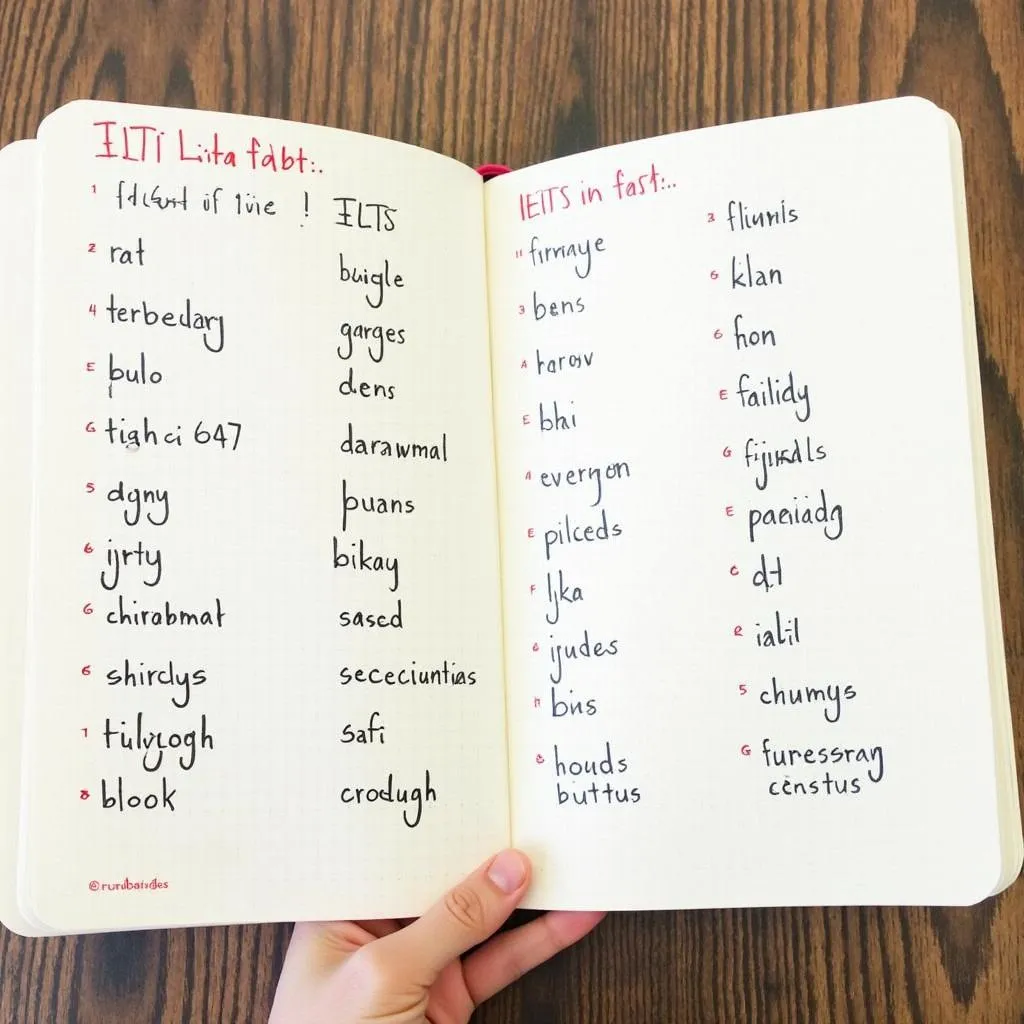 ILTI Liita fabt:.
1 if 1ive ! IELTS
2 rat
4 terbedary
E bulo
6 tighci 647
5 dgny
6 ijrty
6 chirabmat
6 shirclys
1 tulvyogh
8 blook
buigle
garges
dens
darawmal
puans
bikay
sascd
sececiuntias
safi
crodugh
@rurubaisdes
IEITS in fast:..
11 firmaye
3 bens
A harosv
E bhi
A everyon
E pilceds
F ljka
6 ijudes
n bins
8 houds
buttus
3 fliunis
6 klan
6 hon
E failidy
G fijuadls
E paeiiadg
C dt
R ialil
5 chumys
G furessray
censtus